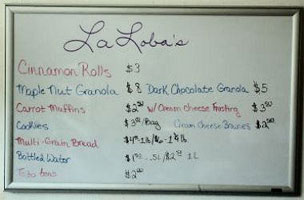 LaLoba's
Cinnamon Rolls $3
Maple Nut Granola $8 Dark Chocolate Granola $5
Carrot Muffins $2.50 w/Cream Cheese Frosting $3.00
Cookies $3.00/Bag Cream Cheese Brownies $2.00
Multi-Grain Bread
Bottled Water .5L/$2.00 1L
$2.00